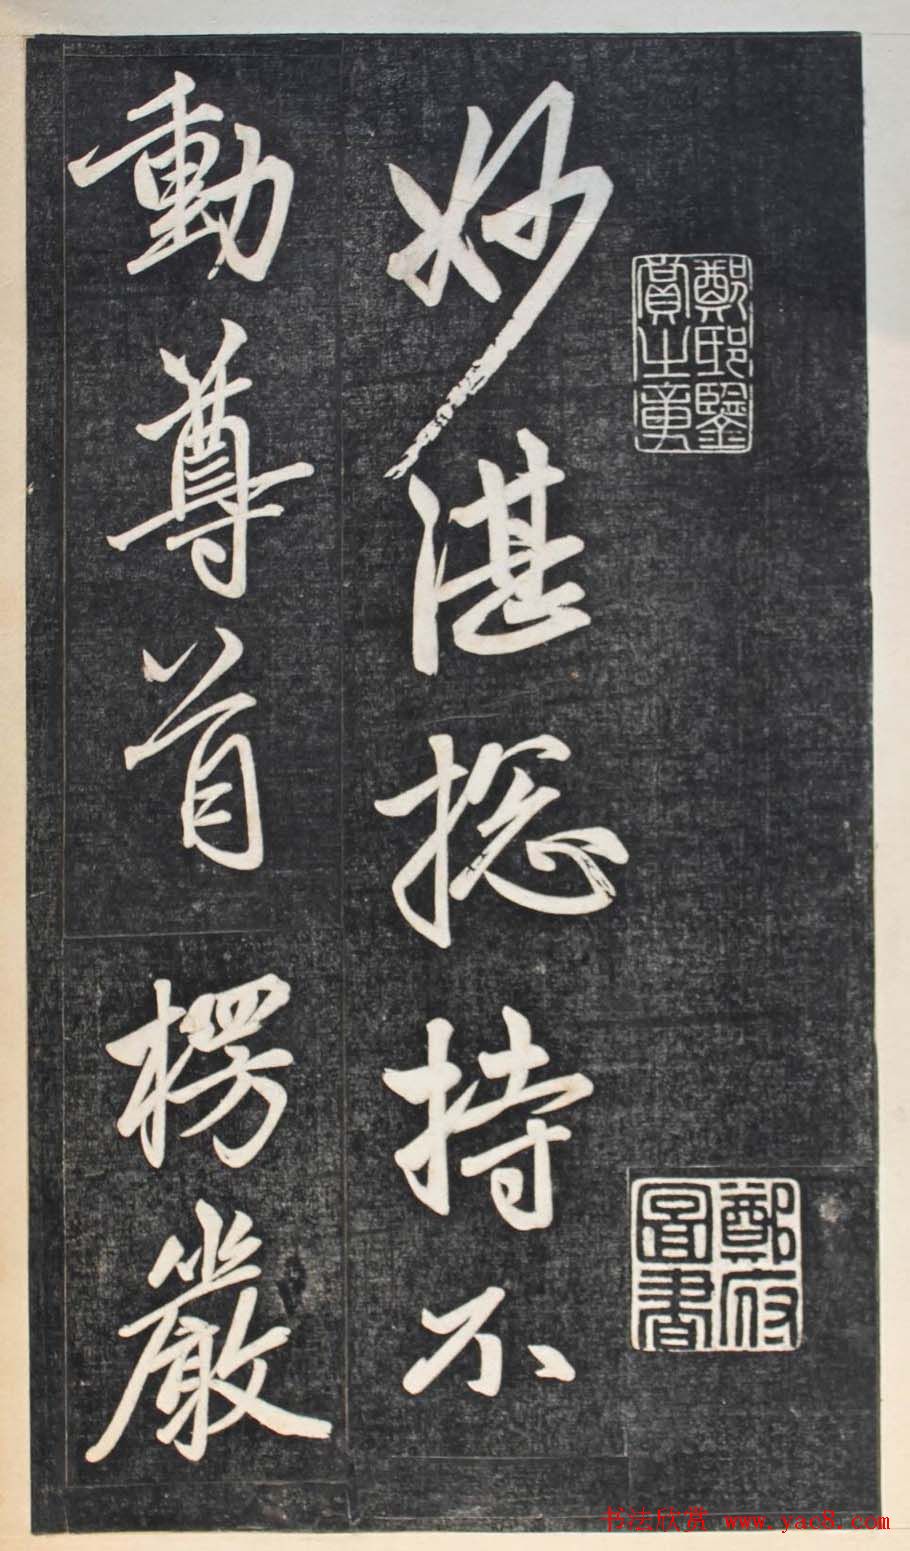 鄭邸鑒
賞之章
鄭府
圖書
妙湛捴持不
動尊首楞嚴
书法欣赏 www.yac8.com